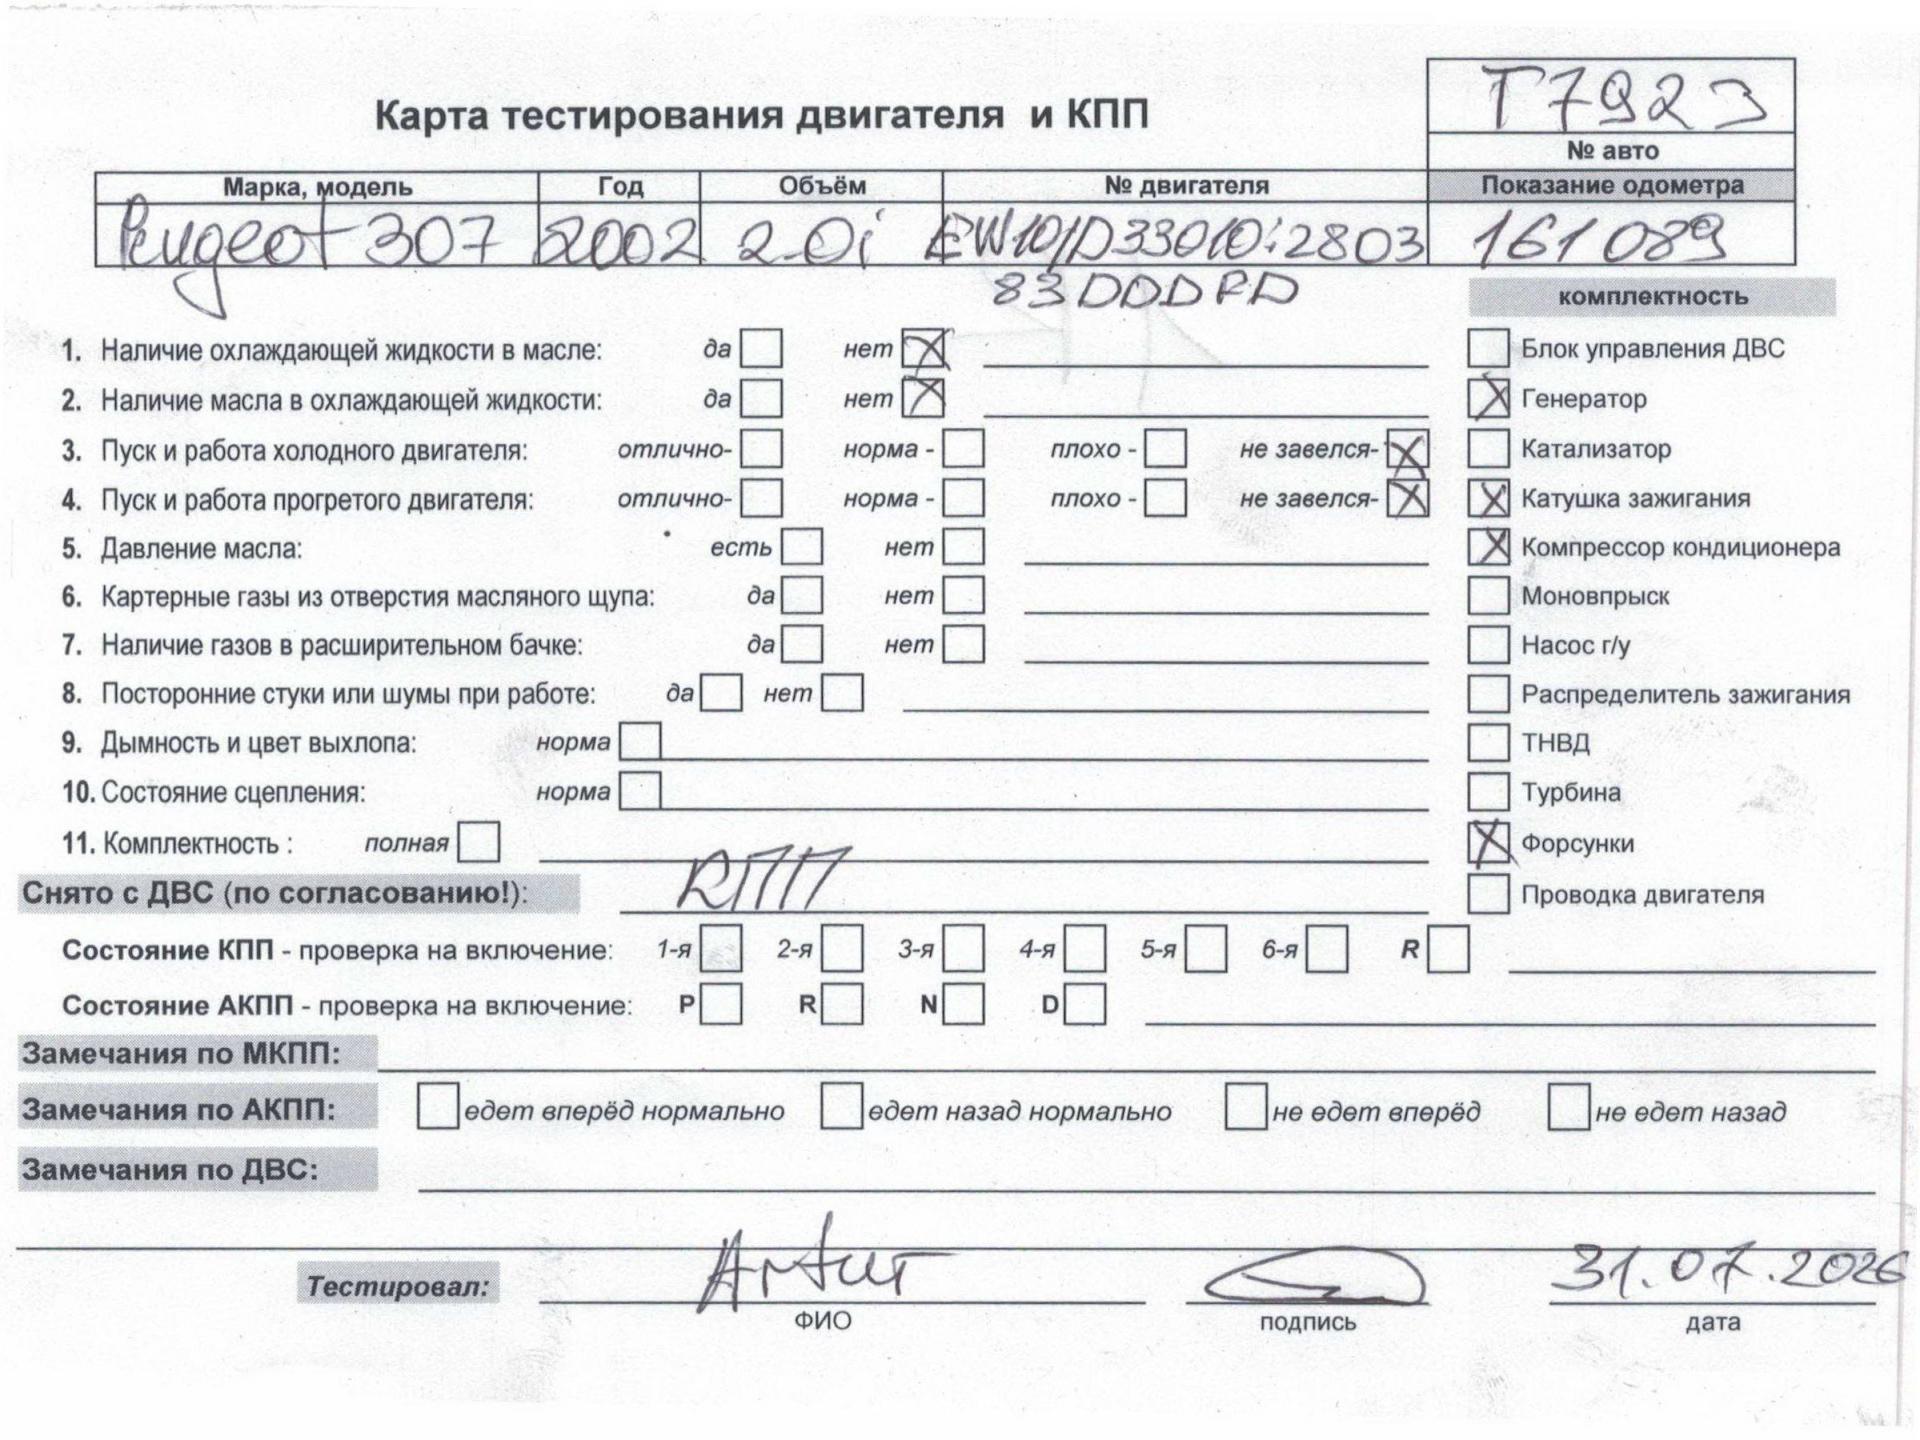 Т7923
Карта тестирования двигателя и КПП
№ авто
Марка, модель Год Объём № двигателя Показание одометра
Peugeot 307 2002 2.0i 161089
комплектность
1. Наличие охлаждающей жидкости в масле: да нет Блок управления ДВС
2. Наличие масла в охлаждающей жидкости: да нет Генератор
3. Пуск и работа холодного двигателя: отлично- норма - плохо - не завелся- Катализатор
4. Пуск и работа прогретого двигателя: отлично- норма - плохо - не завелся- Катушка зажигания
5. Давление масла: есть нет Компрессор кондиционера
6. Картерные газы из отверстия масляного щупа: да нет Моновпрыск
7. Наличие газов в расширительном бачке: да нет Насос г/у
8. Посторонние стуки или шумы при работе: да нет Распределитель зажигания
9. Дымность и цвет выхлопа: норма ТНВД
10. Состояние сцепления: норма Турбина
11. Комплектность : полная Форсунки
Снято с ДВС (по согласованию!): Проводка двигателя
Состояние КПП - проверка на включение: 1-я 2-я 3-я 4-я 5-я 6-я R
Состояние АКПП - проверка на включение: P R N D
Замечания по МКПП:
Замечания по АКПП: едет вперёд нормально едет назад нормально не едет вперёд не едет назад
Замечания по ДВС:
Тестировал: Artur 31.07.2026
ФИО подпись дата